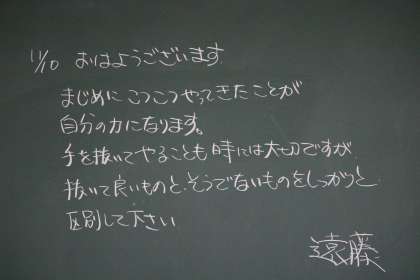 11/10 おはようございます
まじめに こつこつやってきたことが
自分の力になります。
手を抜いてやることも時には大切ですが
抜いて良いものと、そうでないものをしっかりと
区別して下さい
遠藤